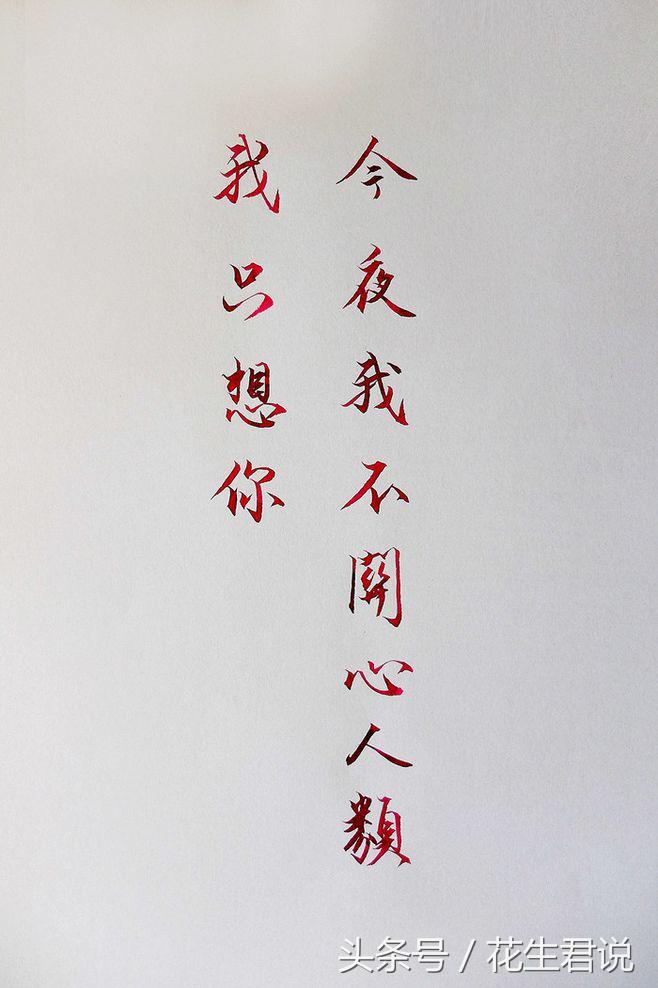 今夜我不關心人類
我只想你
头条号 / 花生君说